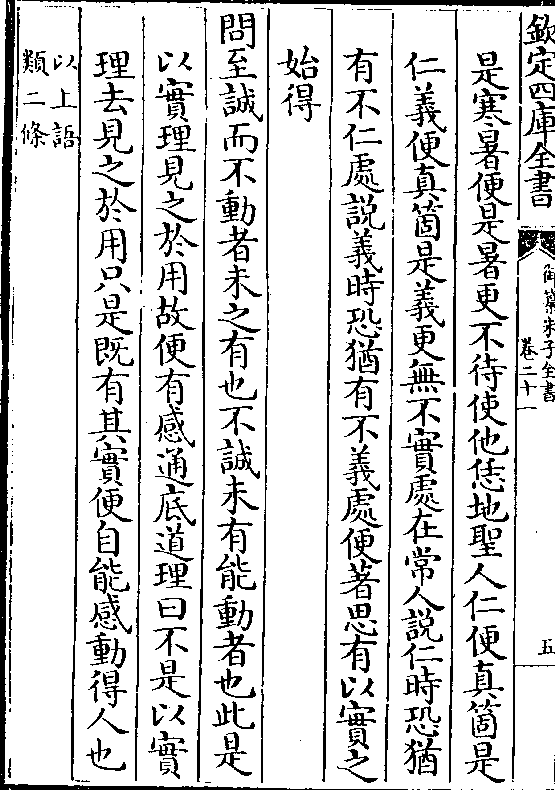 欽定四庫全書
御纂朱子全書
卷二十一
五
是寒暑便是暑更不待使他恁地聖人仁便真箇是
仁義便真箇是義更無不實處在常人說仁時恐猶
有不仁處說義時恐猶有不義處便著思有以實之
始得
問至誠而不動者未之有也不誠未有能動者也此是
以實理見之於用故便有感通底道理曰不是以實
理去見之於用只是既有其實便自能感動得人也
以上語
類二條